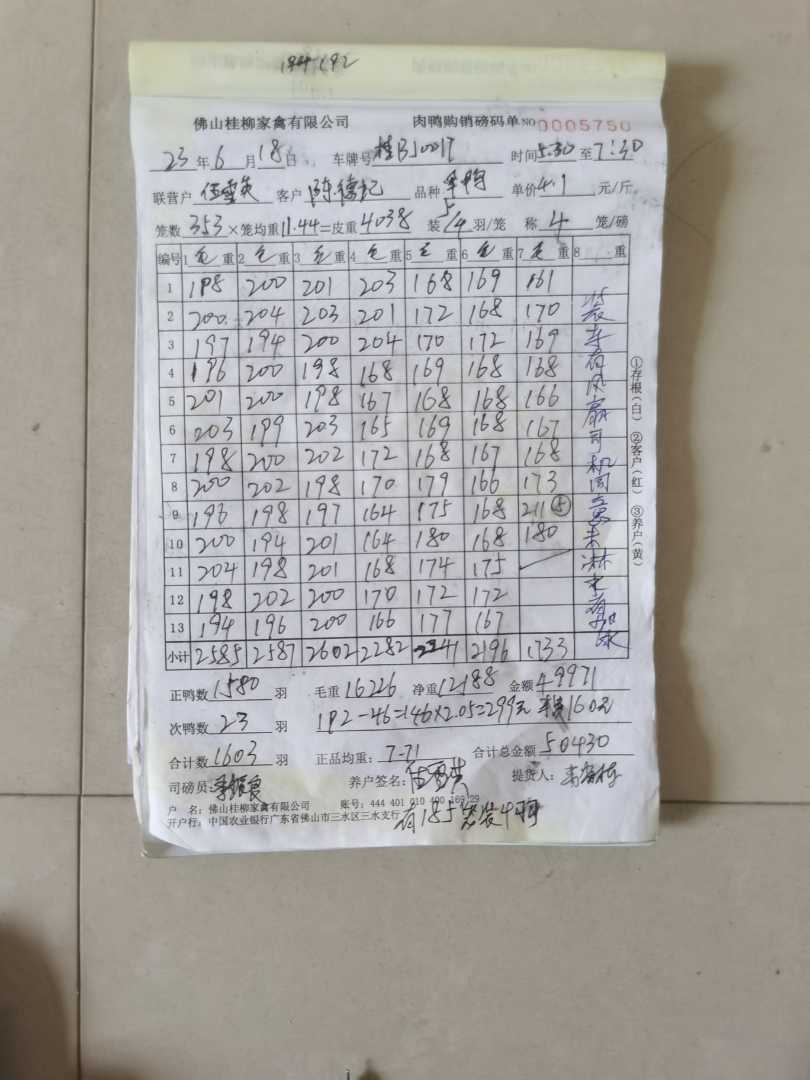 194 192
佛山桂柳家禽有限公司 肉鸭购销磅码单 NO 0005750
23年6月18日 车牌号桂BJ0017 时间5:30至7:30
联营户 伍雪英 客户 陈德记 品种 羊鸭 单价4.1元/斤
笼数353×笼均重11.44=皮重4038 装5/4羽/笼 称4笼/磅
编号 1毛重 2毛重 3毛重 4毛重 5毛重 6毛重 7毛重 8 重
1 198 200 201 203 168 169 161
2 200 204 203 201 172 168 170
3 197 194 200 204 170 172 169
4 196 200 198 168 169 168 168
5 201 200 198 167 168 168 166
6 203 199 203 165 169 168 167
7 198 200 202 172 168 167 168
8 200 202 198 170 179 166 173
9 196 198 197 164 175 168 211⑤
10 200 194 201 164 180 168 180
11 204 198 201 168 174 175
12 198 202 200 170 172 172
13 194 196 200 166 177 167
小计 2585 2587 2602 2282 2241 2196 1733
装车有风扇司机同意未淋水有
①存根(白) ②客户(红) ③养户(黄)
正鸭数1580羽 毛重16226 净重12188 金额49971
次鸭数23羽 192-46=146×2.05=299元 160元
合计数1603羽 正品均重:7.71 合计总金额50430
司磅员: 养户签名:伍雪英 提货人:
户 名:佛山桂柳家禽有限公司 账号:444 401 010 400 169 29
开户行:中国农业银行广东省佛山市三水区三水支行
有185笼装4羽